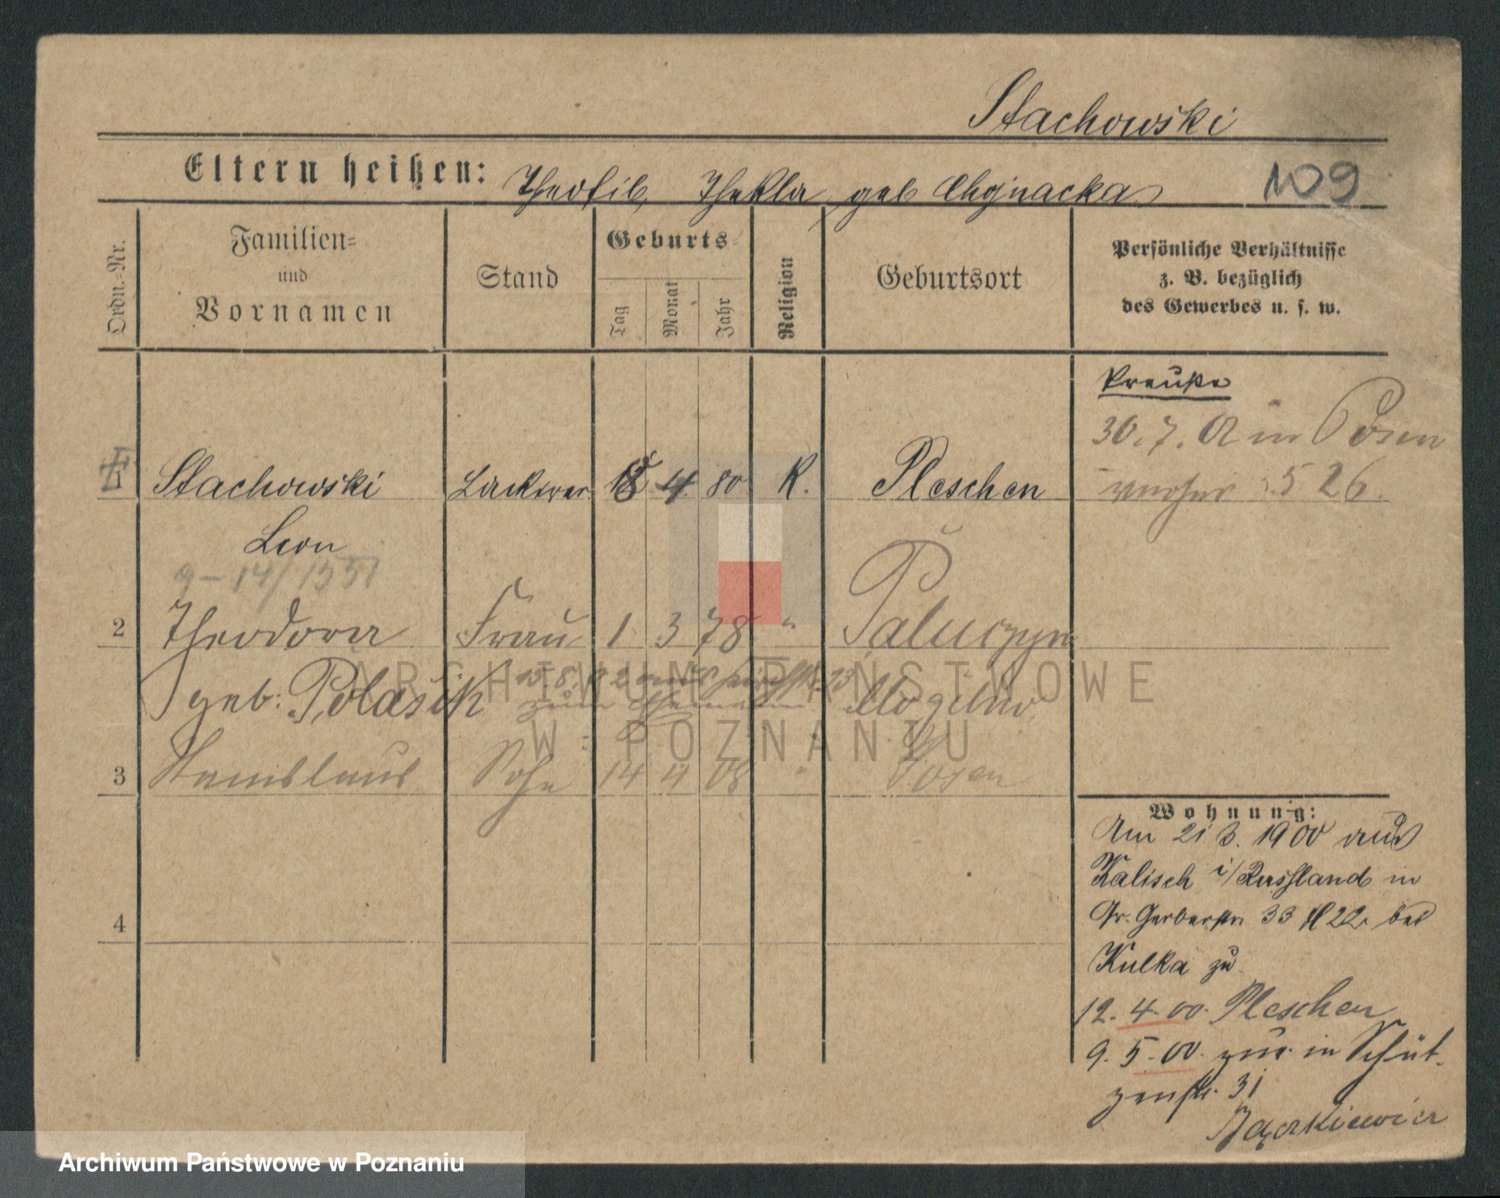 Stachowski
Eltern heißen: Theofil, Thekla geb Chojnacka
109
Ordn.-Nr.
Familien-
und
Vornamen
Stand
Geburts-
Tag
Monat
Jahr
Religion
Geburtsort
Persönliche Verhältnisse
z. B. bezüglich
des Gewerbes u. s. w.
Preuße
30. 7. in Posen
526.
Stachowski Lackierer 18 4 80 R. Pleschen
Leon
9-14/1551
2 Theodora Frau 1. 3 78 " Paluczyn
geb: Polasik Mogilno
3 Stanislaus Sohn 14 4 08 " Posen
4
Wohnung:
Am 21 3. 1900 aus
Kalisch i/Russland in
Gr. Gerberstr. 33 22 bei
Kulka zu
12. 4. 00. Pleschen
9. 5. 00. zur. in Schüt-
zenstr. 31
ARCHIWUM PAŃSTWOWE
W POZNANIU
Archiwum Państwowe w Poznaniu